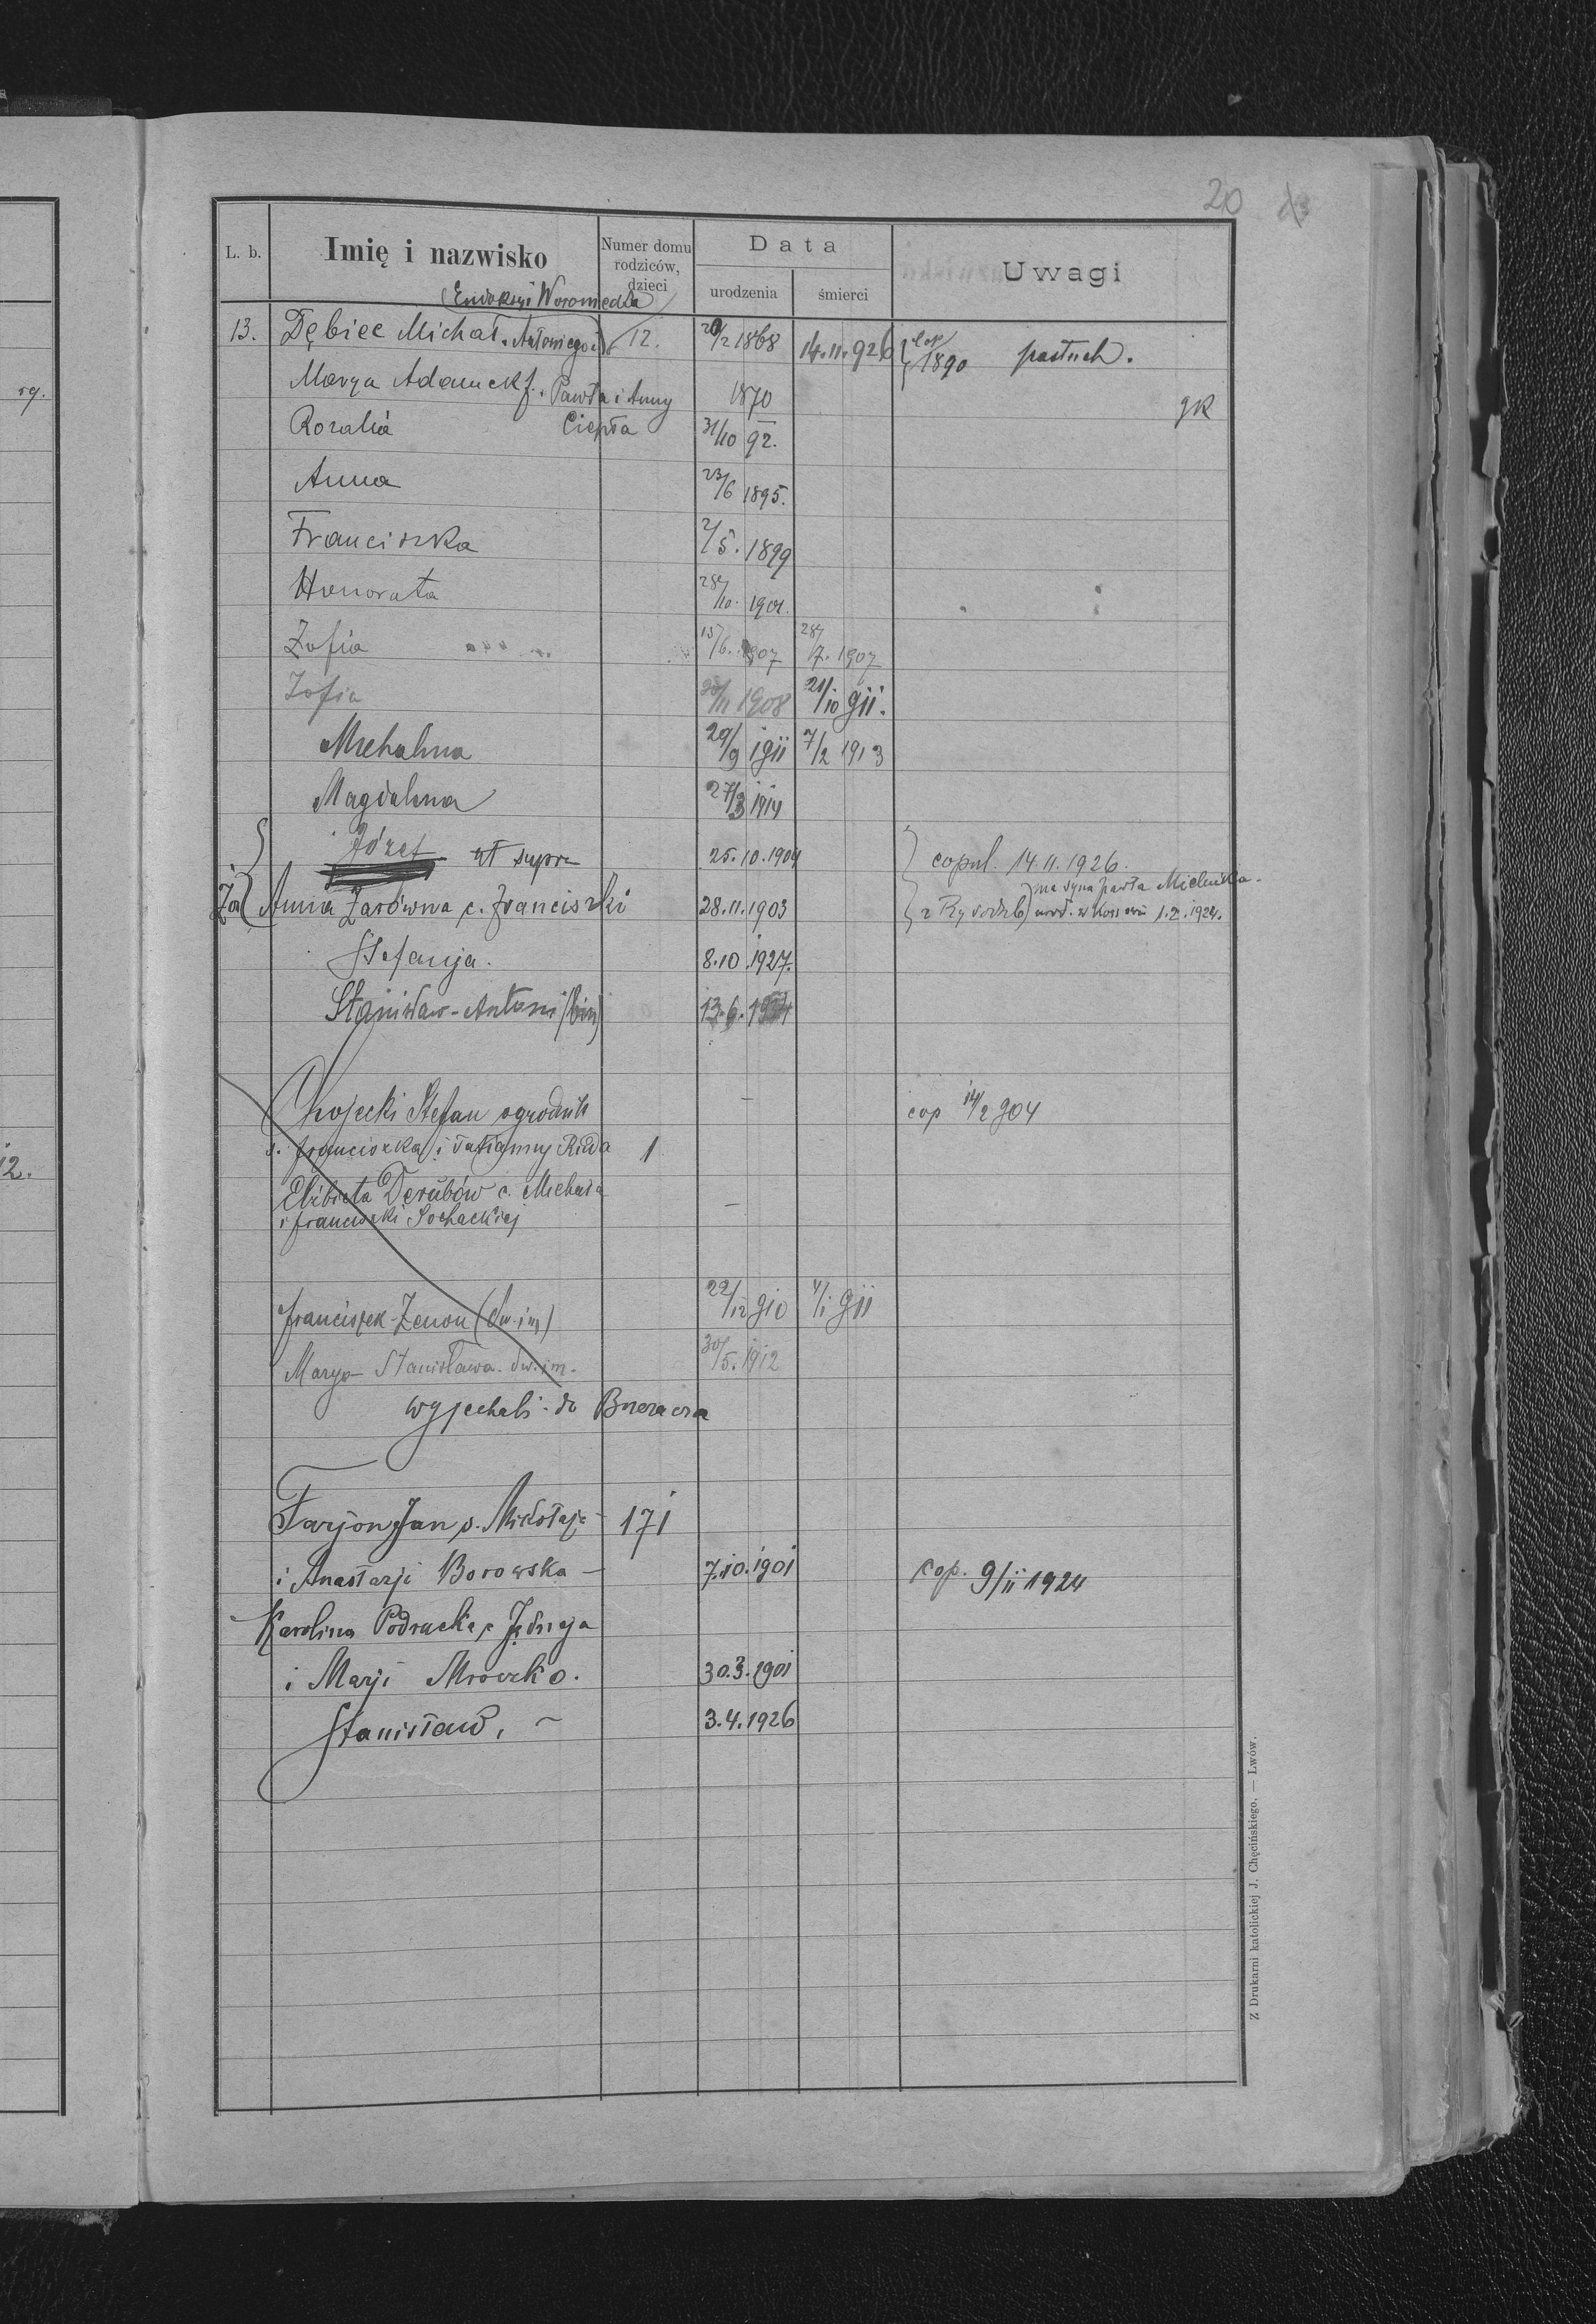 20
L. b. Imię i nazwisko Numer domu rodziców, dzieci Data urodzenia śmierci Uwagi
(Eudoksyi Woromedka)
13. Dębiec Michał s. Antoniego i 12. 20/2 1868 14.11.926 cop 1890 pastuch.
Marya Adamck f. Pawła i Anny 1870 gk
Rozalia Ciepła 31/10 92.
Anna 23/6 1895.
Franciszka 2/5. 1899
Honorata 28/10. 1901.
Zofia 15/6. 1907 28/7. 1907
Zofia 20/11 1908 21/10 911.
Michalina 29/9 1911 7/2 1913
Magdalena 27/3 1914
Józef ut supra 25.10.1904 copul. 14.11.1926.
Anna Żarówna c. Franciszki 28.11.1903 ma syna Pawła
1.2.1924.
Stefanja. 8.10.1927.
Stanisław-Antoni (bin) 13.6.
Chojecki Stefan ogrodnik – cop 14/2 904
s. Franciszka i Tatianny Rida 1
Elżbieta Derubów c. Michała –
i Franciszki Sochackiej
Franciszek-Zenon (dw.im) 22/12 910 4/1 911
Marya Stanisława. dw.im. 30/5. 1912
wyjechali do Buczacza
Farjon Jan s. Mikołaja 171
i Anastazji Borowska – 7.10.1901 cop. 9/11 1924
Karolina Podrucka c Jędrzeja
i Marji Mroczko. 30.3.1901
Stanisław, – 3.4.1926
Z Drukarni katolickiej J. Chęcińskiego. — Lwów.
rg.
12.